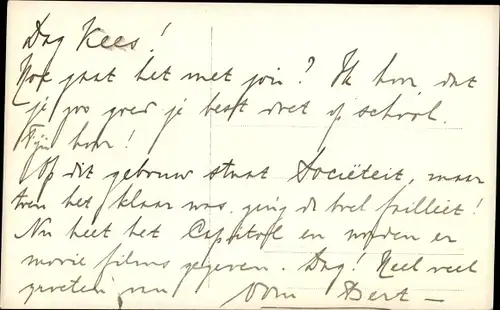 Dag Kees!
Hoe gaat het met jou? Ik hoor, dat
je zoo goed je best doet op school.
Fijn hoor!
Op dit gebouw staat Sociëteit, maar
toen het klaar was, ging de boel failliet!
Nu heet het Capitol en worden er
mooie films gegeven. Dag! Heel veel
groeten van Oom Bert —